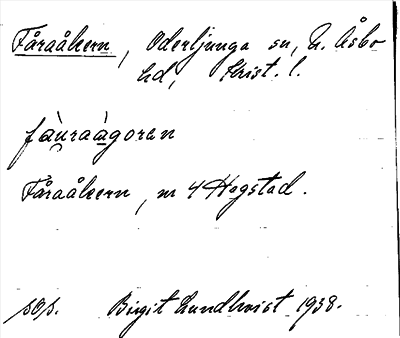 Fåraåkern, Oderljunga sn, N. Åsbo
hd, Krist. l.
fàu̯raàgorɛn
Fåraåkern, nr 4 Hogstad.
sOs. Birgit Lundkvist 1938.